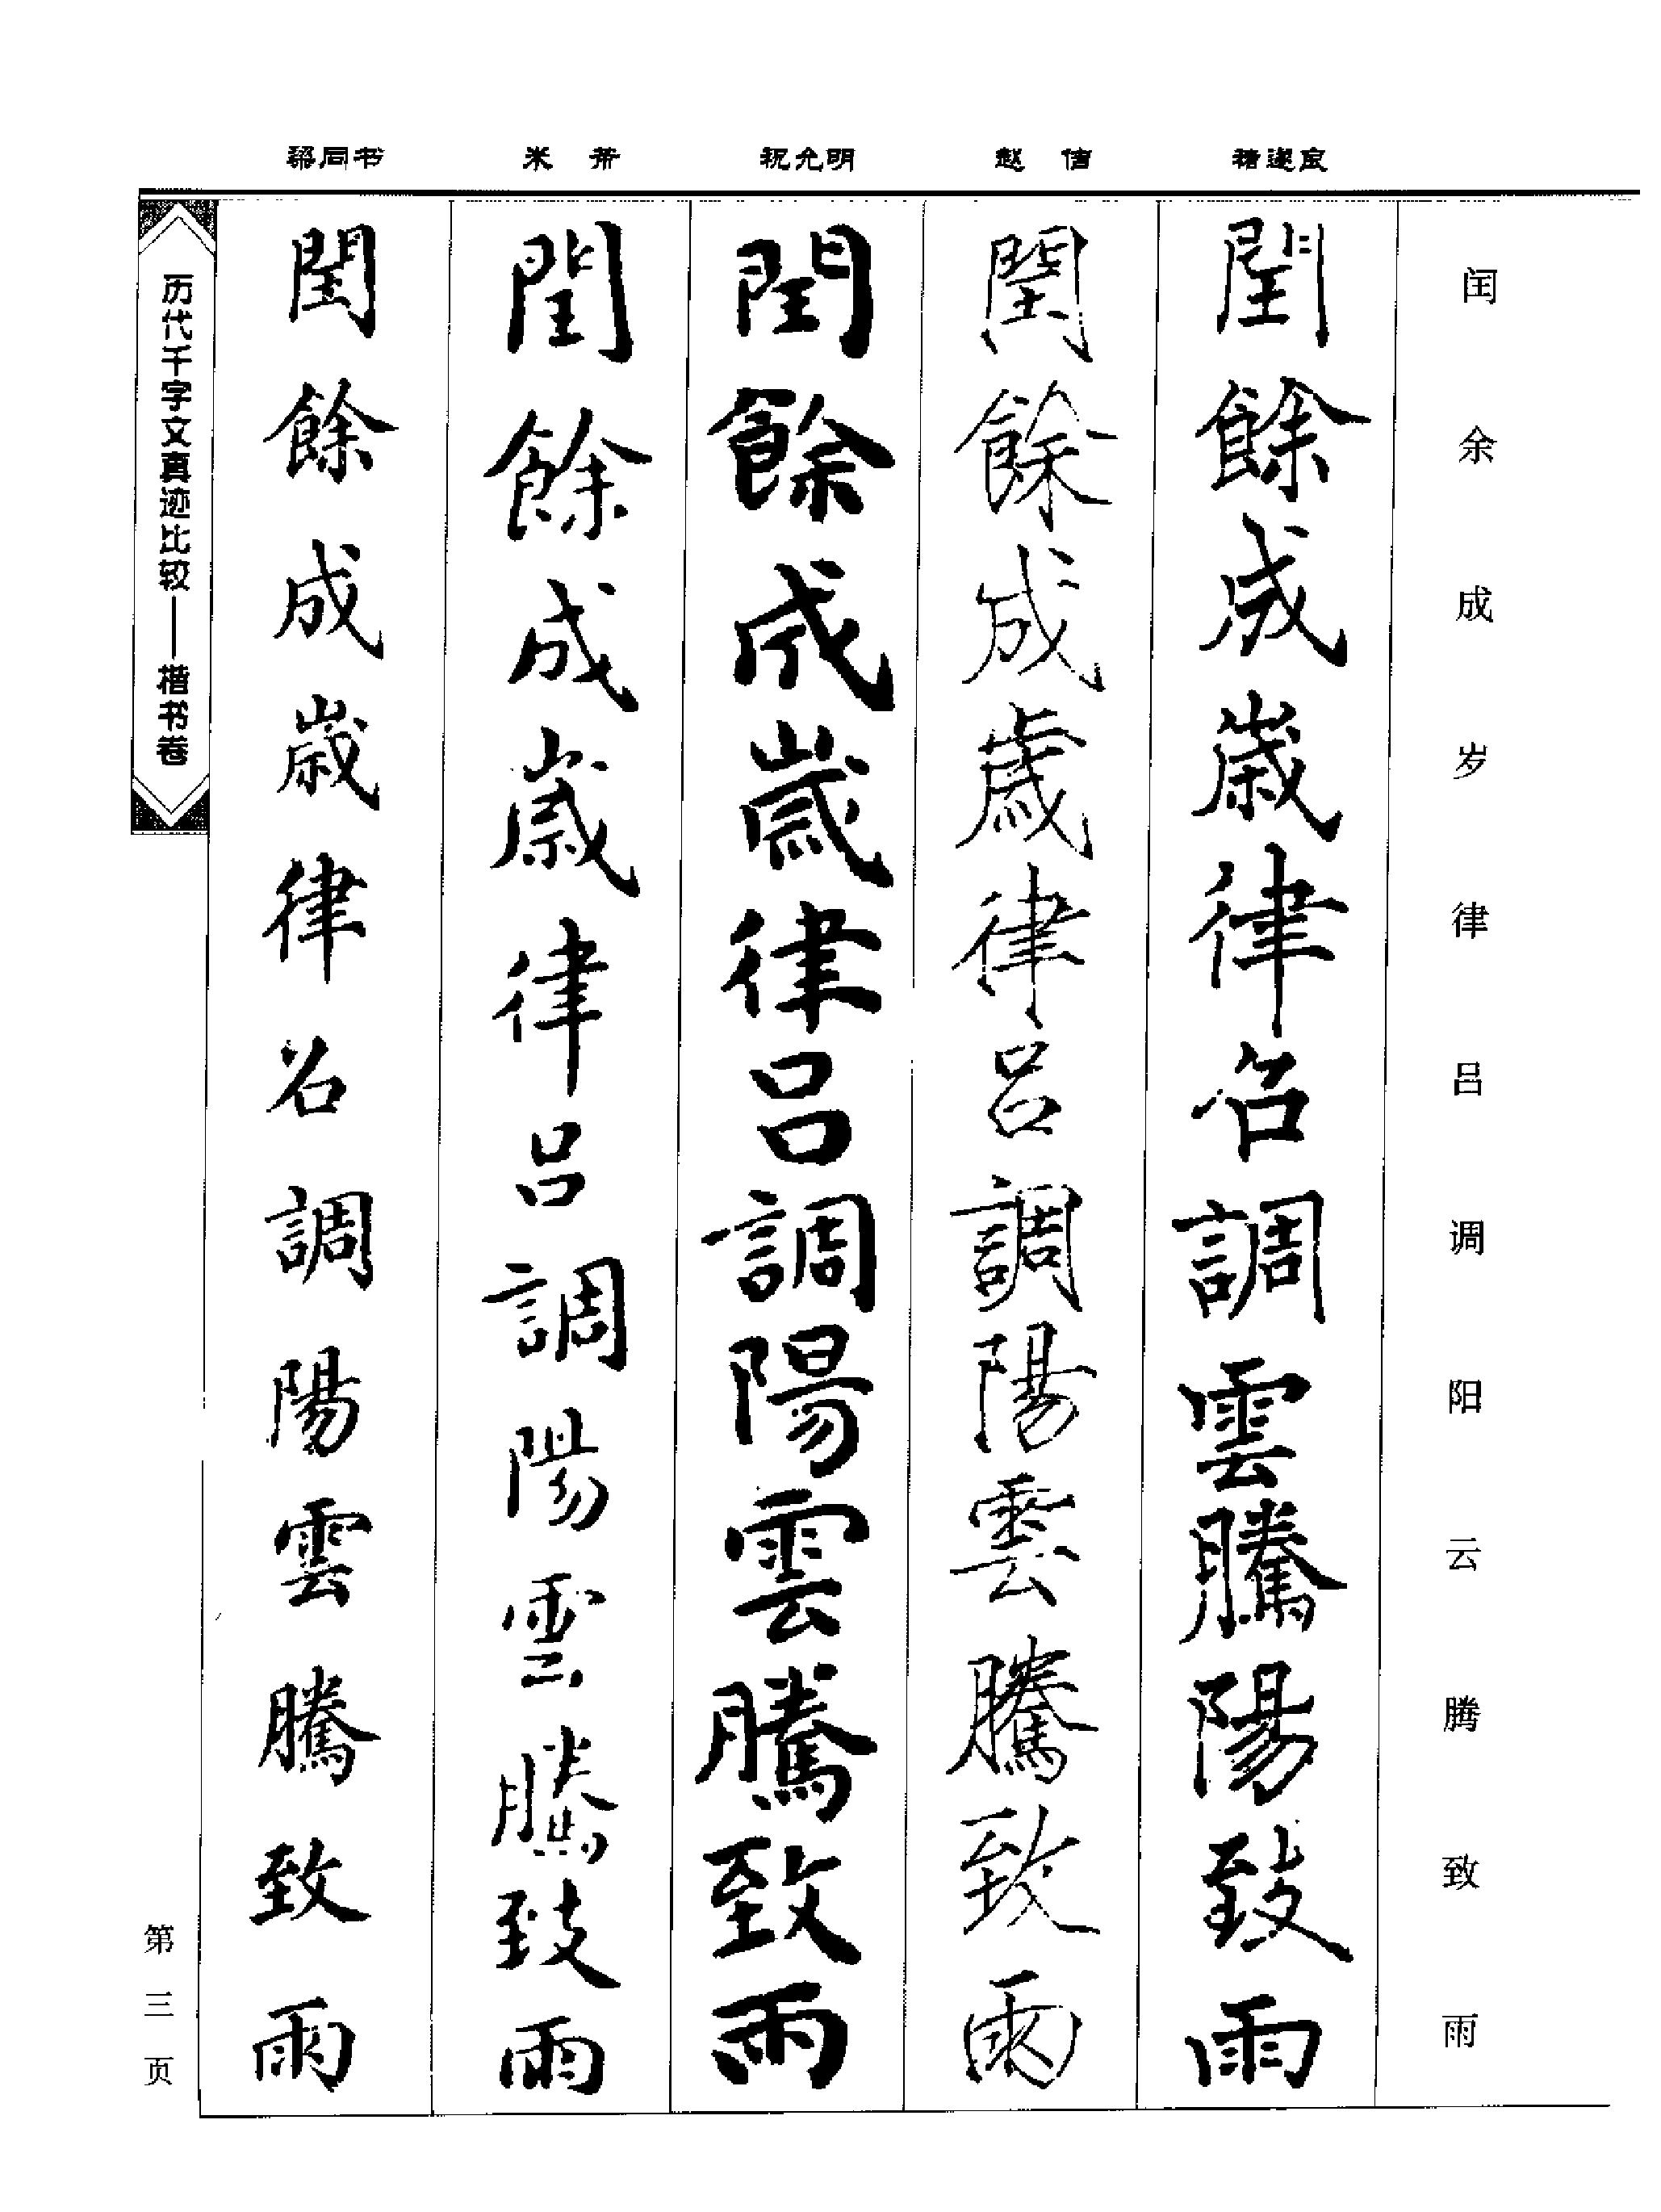 褚遂良
赵佶
祝允明
米芾
梁同书
闰余成岁律吕调阳云腾致雨
閏餘成歳律召調雲騰陽致雨
閏餘成歲律呂調陽雲騰致雨
閏餘成歳律呂調陽雲騰致雨
閏餘成歳律呂調陽雲騰致雨
閏餘成歳律召調陽雲騰致雨
历代千字文真迹比较——楷书卷
第三页